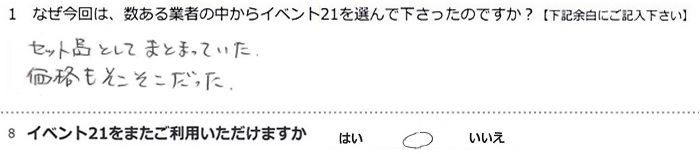 1 なぜ今回は、数ある業者の中からイベント21を選んで下さったのですか？【下記余白にご記入下さい】
セット品としてまとまっていた.
価格もそこそこだった.
8 イベント21をまたご利用いただけますか はい いいえ